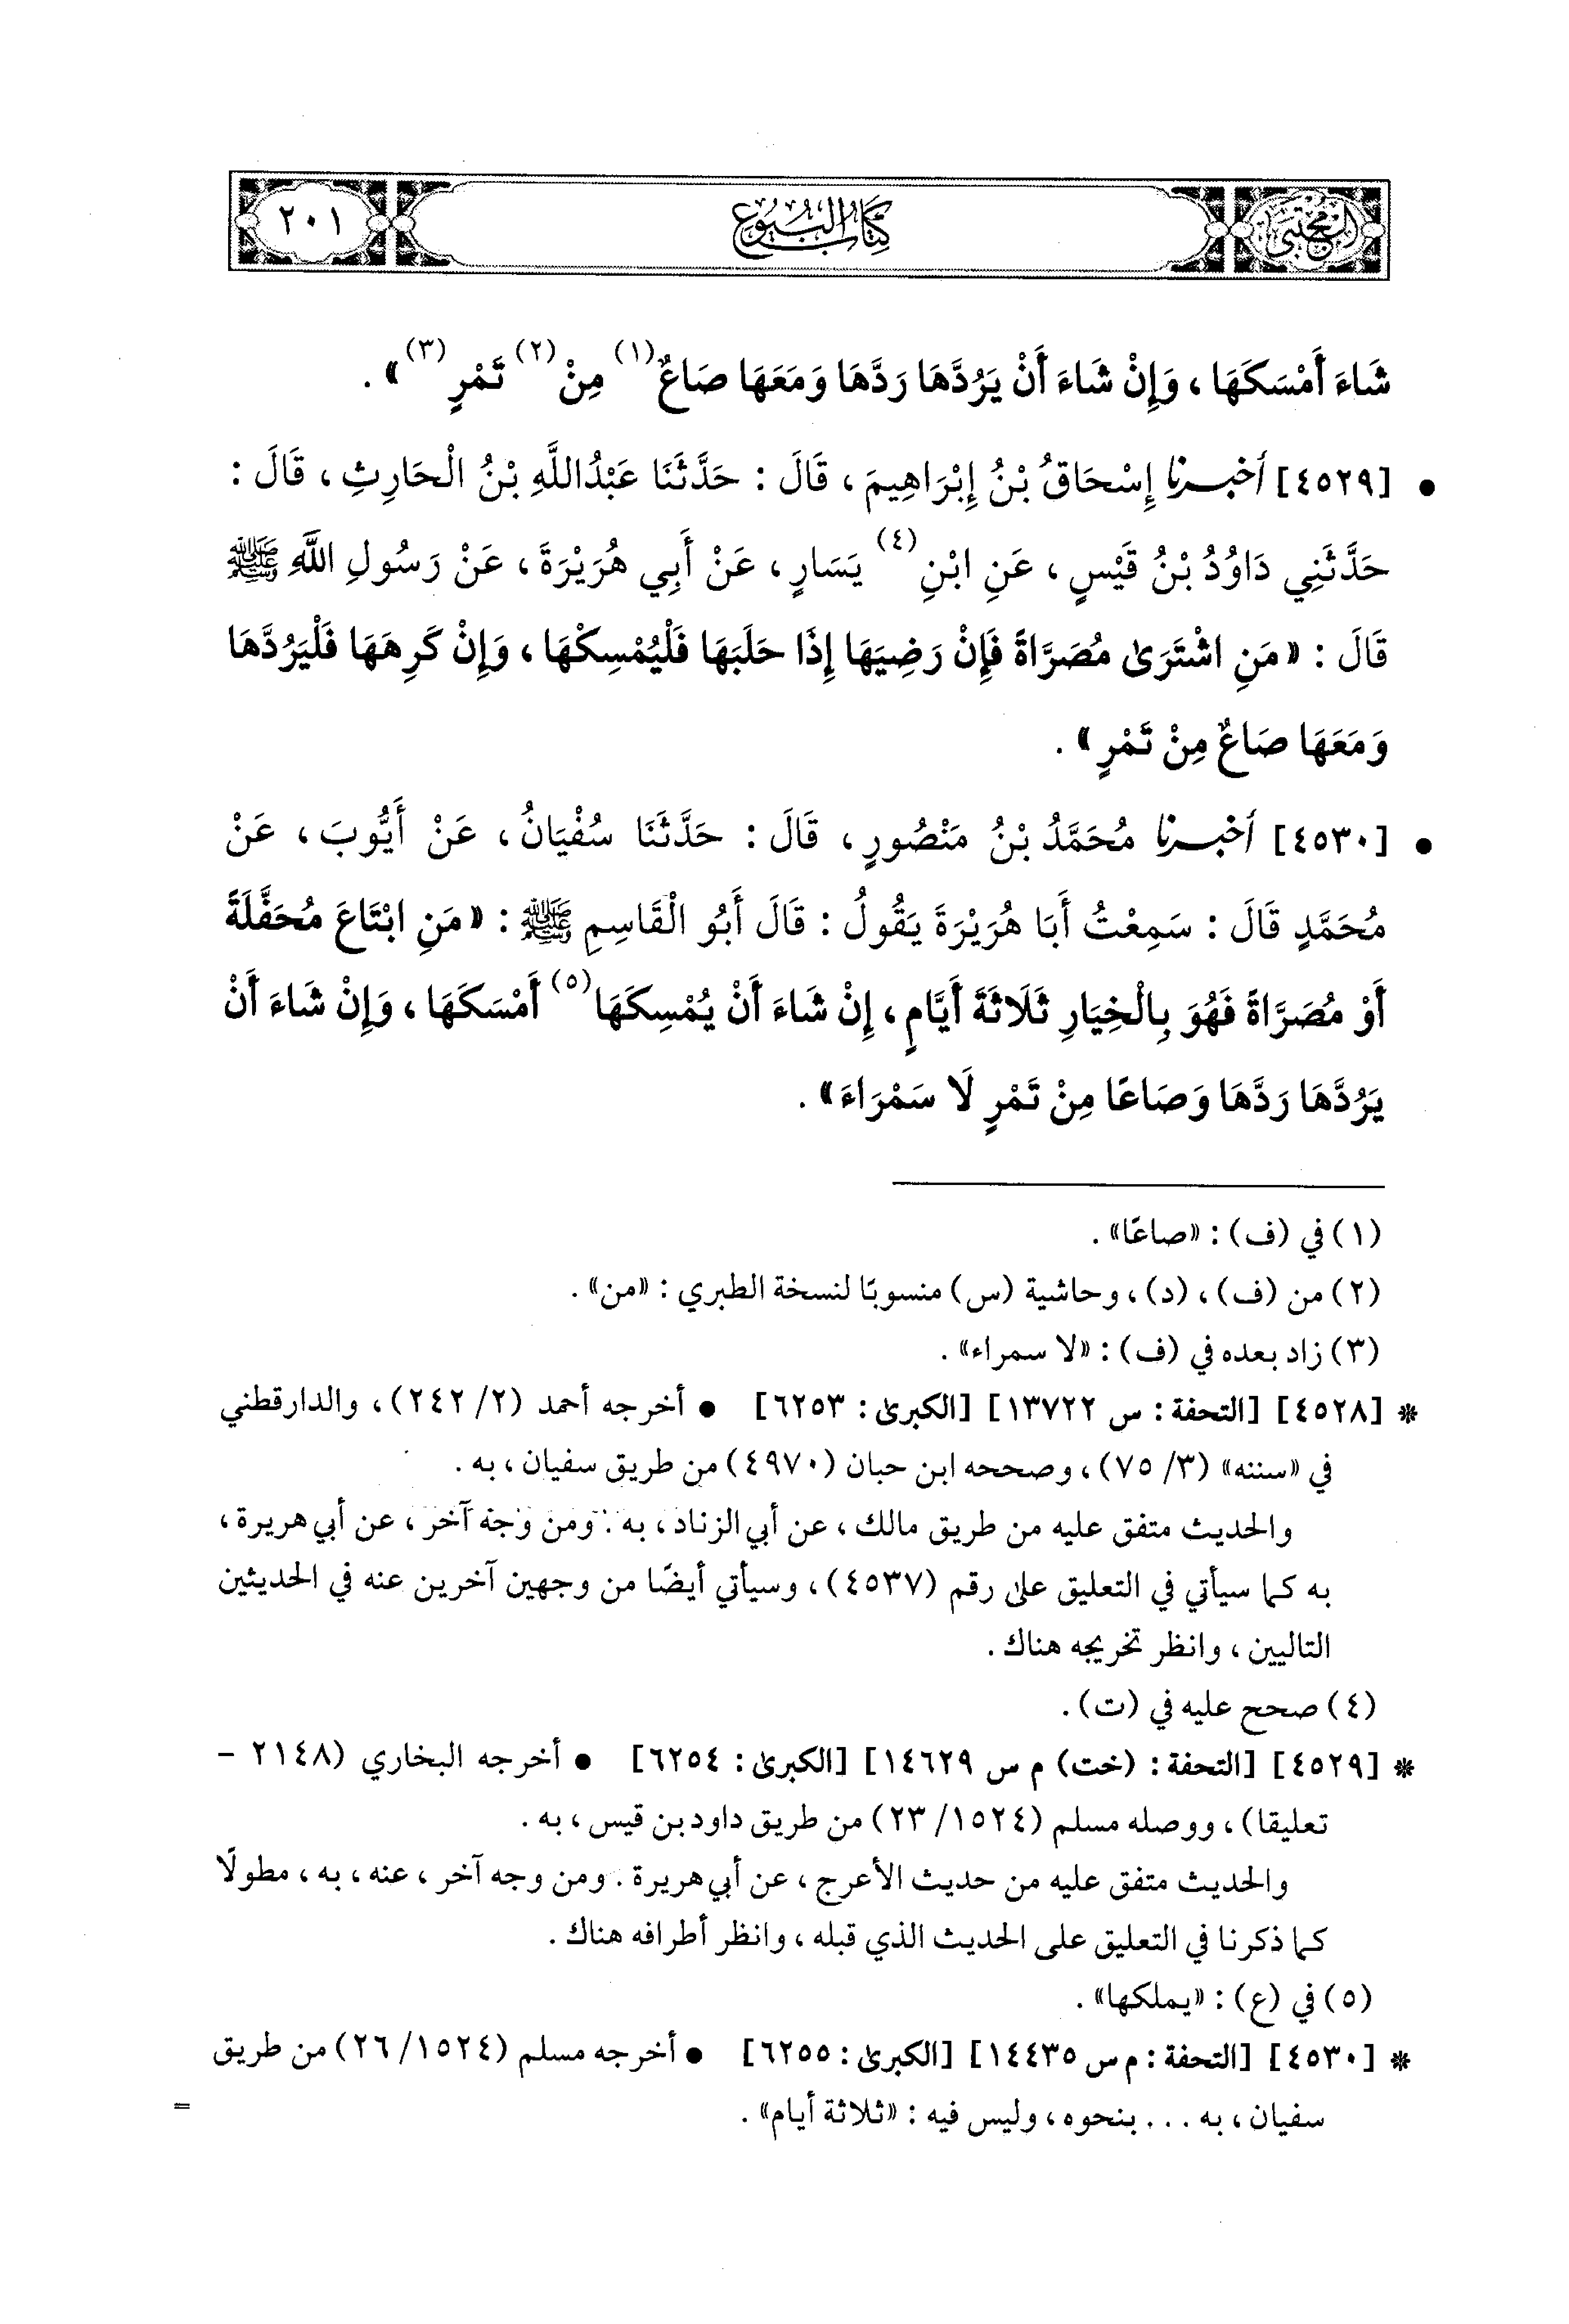 المجتبى
كتاب البيوع
٢٠١
شَاءَ أَمْسَكَهَا ، وَإِنْ شَاءَ أَنْ يَرُدَّهَا رَدَّهَا وَمَعَهَا صَاعٌ(١) مِنْ(٢) تَمْرٍ(٣)» .
• [٤٥٢٩] أخبرنا إِسْحَاقُ بْنُ إِبْرَاهِيمَ ، قَالَ : حَدَّثَنَا عَبْدُاللَّهِ بْنُ الْحَارِثِ ، قَالَ :
حَدَّثَنِي دَاوُدُ بْنُ قَيْسٍ ، عَنِ ابْنِ(٤) يَسَارٍ ، عَنْ أَبِي هُرَيْرَةَ ، عَنْ رَسُولِ اللَّهِ ﷺ
قَالَ : «مَنِ اشْتَرَىٰ مُصَرَّاةً فَإِنْ رَضِيَهَا إِذَا حَلَبَهَا فَلْيُمْسِكْهَا ، وَإِنْ كَرِهَهَا فَلْيَرُدَّهَا
وَمَعَهَا صَاعٌ مِنْ تَمْرٍ» .
• [٤٥٣٠] أخبرنا مُحَمَّدُ بْنُ مَنْصُورٍ ، قَالَ : حَدَّثَنَا سُفْيَانُ ، عَنْ أَيُّوبَ ، عَنْ
مُحَمَّدٍ قَالَ : سَمِعْتُ أَبَا هُرَيْرَةَ يَقُولُ : قَالَ أَبُو الْقَاسِمِ ﷺ : «مَنِ ابْتَاعَ مُحَفَّلَةً
أَوْ مُصَرَّاةً فَهُوَ بِالْخِيَارِ ثَلَاثَةَ أَيَّامٍ ، إِنْ شَاءَ أَنْ يُمْسِكَهَا(٥) أَمْسَكَهَا ، وَإِنْ شَاءَ أَنْ
يَرُدَّهَا رَدَّهَا وَصَاعًا مِنْ تَمْرٍ لَا سَمْرَاءَ» .
(١) في (ف) : «صاعًا» .
(٢) من (ف) ، (د) ، وحاشية (س) منسوبًا لنسخة الطبري : «من» .
(٣) زاد بعده في (ف) : «لا سمراء» .
* [٤٥٢٨] [التحفة : س ١٣٧٢٢] [الكبرىٰ : ٦٢٥٣] • أخرجه أحمد (٢/ ٢٤٢) ، والدارقطني
في «سننه» (٣/ ٧٥) ، وصححه ابن حبان (٤٩٧٠) من طريق سفيان ، به .
والحديث متفق عليه من طريق مالك ، عن أبي الزناد ، به . ومن وجه آخر ، عن أبي هريرة ،
به كما سيأتي في التعليق على رقم (٤٥٣٧) ، وسيأتي أيضًا من وجهين آخرين عنه في الحديثين
التاليين ، وانظر تخريجه هناك .
(٤) صحح عليه في (ت) .
* [٤٥٢٩] [التحفة : (خت) م س ١٤٦٢٩] [الكبرىٰ : ٦٢٥٤] • أخرجه البخاري (٢١٤٨ -
تعليقا) ، ووصله مسلم (١٥٢٤/ ٢٣) من طريق داود بن قيس ، به .
والحديث متفق عليه من حديث الأعرج ، عن أبي هريرة . ومن وجه آخر ، عنه ، به ، مطولًا
كما ذكرنا في التعليق على الحديث الذي قبله ، وانظر أطرافه هناك .
(٥) في (ع) : «يملكها» .
* [٤٥٣٠] [التحفة : م س ١٤٤٣٥] [الكبرىٰ : ٦٢٥٥] • أخرجه مسلم (١٥٢٤/ ٢٦) من طريق
سفيان ، به . . . بنحوه ، وليس فيه : «ثلاثة أيام» .
=